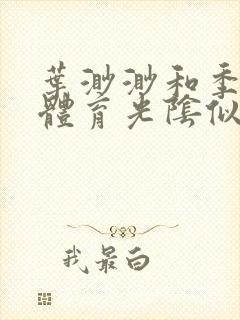 葉渺渺和季
體育光陰似
我最白